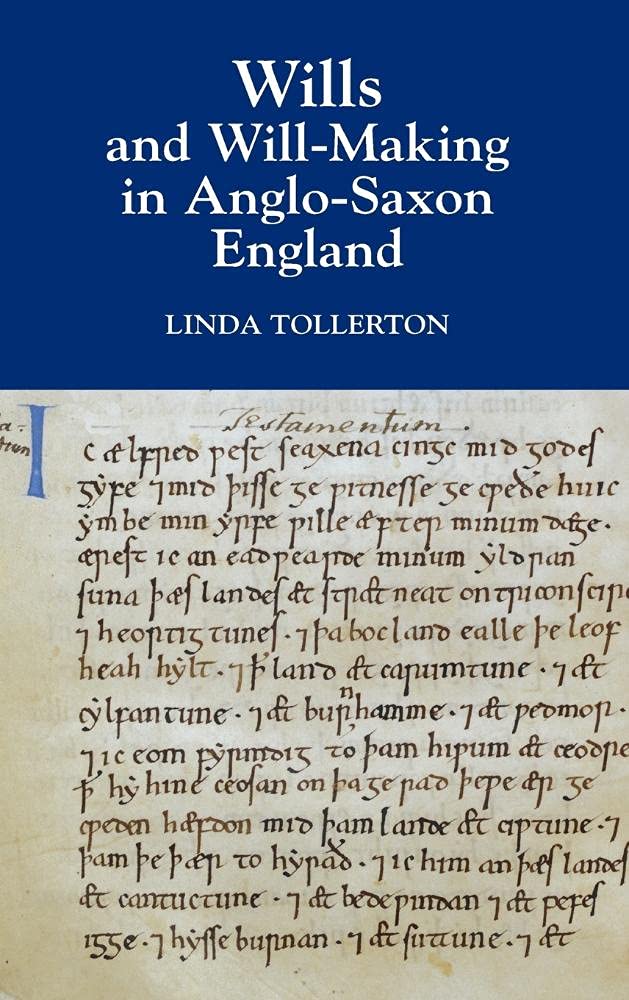 Wills
and Will-Making
in Anglo-Saxon
England
LINDA TOLLERTON
Testamentum.
Ic ælfred ƿest seaxena cingc mid godes
gyfe ⁊ mid þisse ge ƿitnesse ge cƿeðe hu ic
ymbe min yrfe ƿille æfter minum dæge.
ærest ic an eadƿearde minum yldran
suna þæs landes æt strætneat on triconscire
⁊ heortigtunes. ⁊ þa bocland ealle þe leof
heah hylt. ⁊ ꝥ land æt carumtune. ⁊ æt
cylfantune. ⁊ æt burnhamme. ⁊ æt ƿedmor.
⁊ ic eom fyrmdig to þam hiƿum æt ceodre
ꝥ hy hine ceosan on þa ge rad þe ƿe ær ge
cƿeden hæfdon mid þam lande æt ciƿtune. ⁊
þam þe þær to hyrað. ⁊ ic him an þæs landes
æt cantuctune. ⁊ æt bedeƿindan ⁊ æt ƿefes
igge. ⁊ hysse burnan. ⁊ æt suttune. ⁊ æt